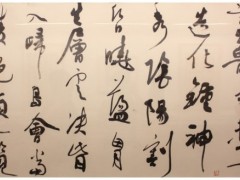 造化鍾神
秀陰陽割
昏曉盪胸
生層雲決眥
入歸鳥會當